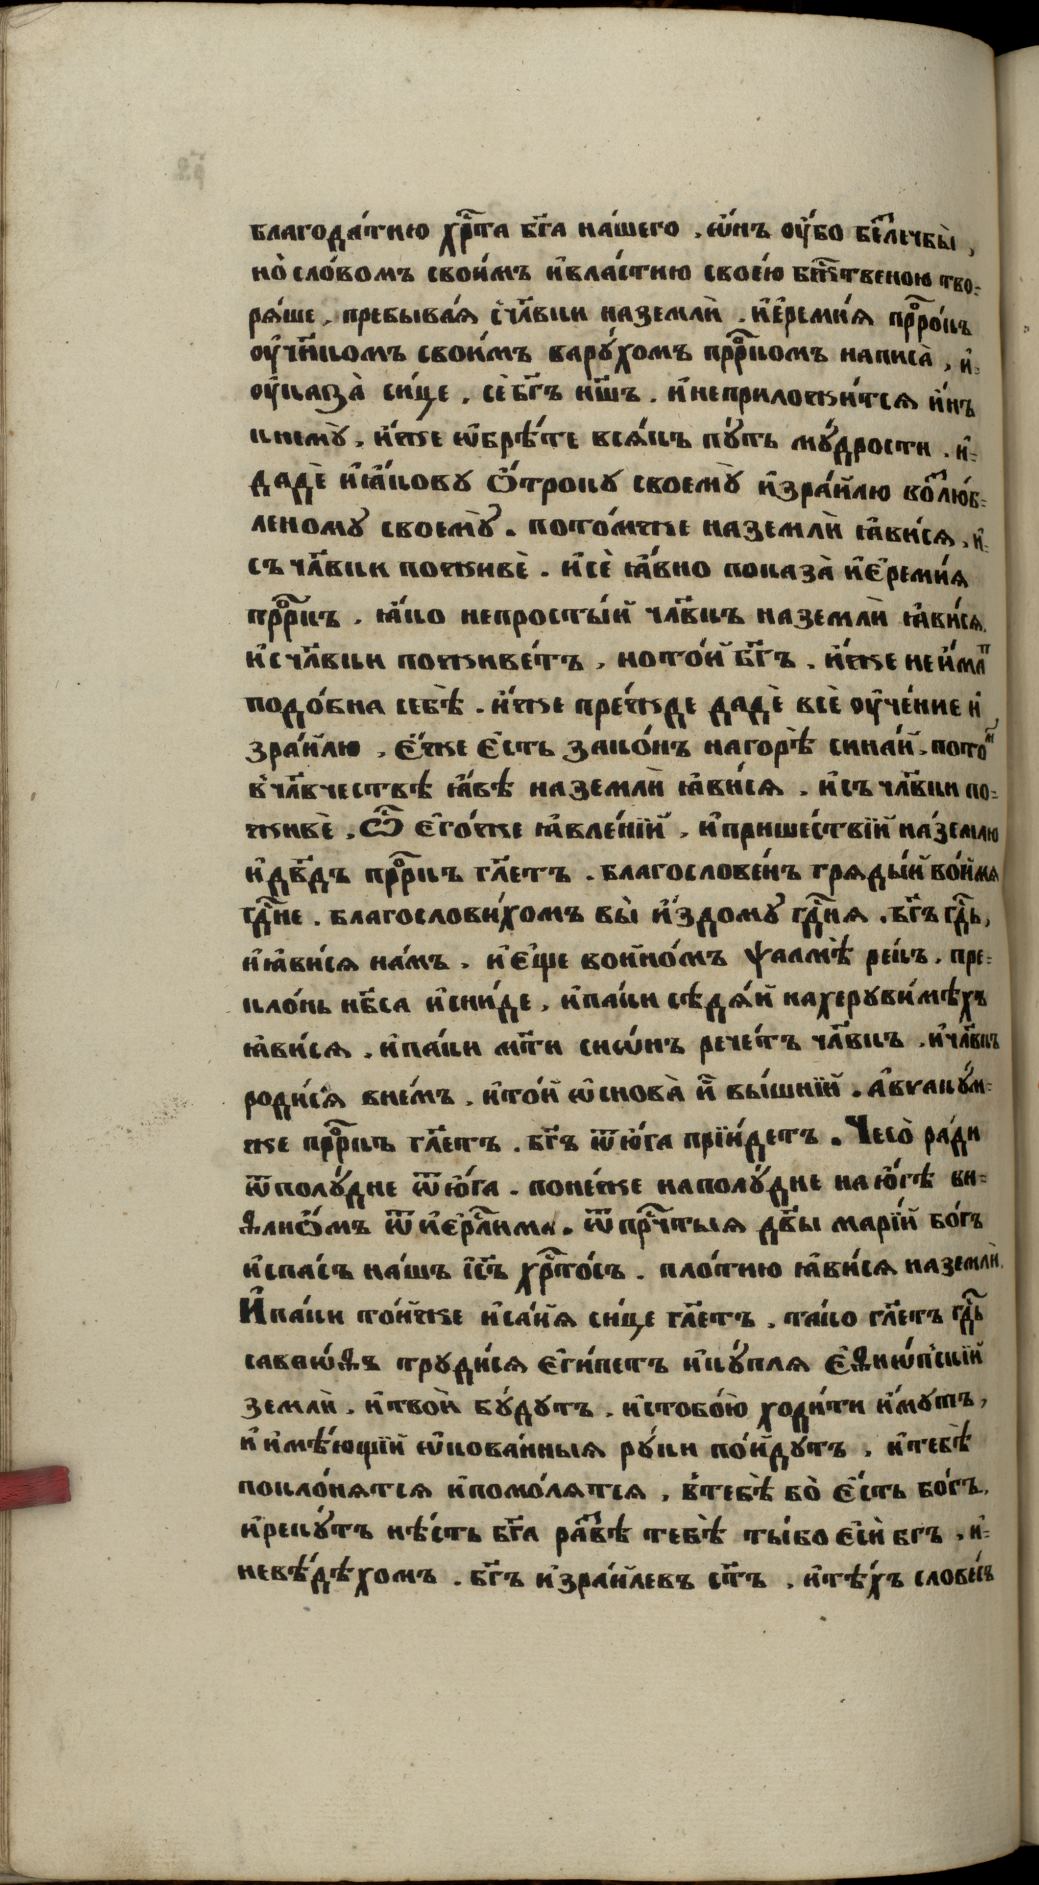 благода́тию хрⷭ҇та бг҃а на́шего , ѡ҆́нъ ᲂу҆́бо беⷥле́чбы̀ ,
но̀ сло́вомъ свои́мъ и҆вла́стию свое́ю бж҃ⷭ҇твеною тво-
рѧ́ше , пребыва́ѧ с̾чл҃вки наземлѝ . и҆є҆реми́ѧ прⷪ҇ро́къ
ᲂу҆чн҃ко́мъ свои́мъ вару́хомъ прⷪ҇ркомъ написа̀ , и҆-
ᲂу҆каза̀ си́це , сѐ бг҃ъ нш҃ъ . и҆неприложи́тсѧ и҆́нъ
кнему̀ , и҆́же ѡ҆брѣ́те всѧ́къ пу́ть му́дрости . и҆-
дадѐ и҆ꙗ҆́кову ѻ҆́троку своему̀ и҆зра́илю воⷥлю́б-
леному своему̀ . пото́мже наземлѝ ꙗ҆ви́сѧ . и҆-
съ чл҃вки поживѐ . и҆сѐ ꙗ҆́вно показа̀ и҆є҆реми́ѧ
прⷪ҇ркъ . ꙗ҆́ко непросты́й чл҃вкъ наземлѝ ꙗ҆ви́сѧ ,
и҆счл҃вки поживе́тъ , но то́й бг҃ъ . и҆́же не и҆́маⷮ
подо́бна себѣ̀ . и҆́же пре́жде дадѐ всѐ ᲂу҆че́ние и҆-
зра́илю , є҆́же є҆́сть зако́нъ нагорѣ̀ сина́й , потоⷨ
в̾чл҃вчествѣ ꙗ҆́вѣ наземлѝ ꙗ҆ви́сѧ . и҆съ чл҃вки по-
живѐ , ѽ є҆го́же ꙗ҆вле́нїй , и҆прише́ствїй на́землю
и҆дв҃дъ прⷪ҇ркъ гл҃етъ . благослове́нъ грѧды́й во и҆́мѧ
гдⷭ҇не . благослови́хомъ вы̀ и҆здому гдⷭ҇нѧ . бг҃ъ гдⷭ҇ь ,
и҆ꙗ҆ви́сѧ на́мъ . и҆є҆ще воино́мъ ѱалмѣ̀ ре́къ . пре-
кло́нь нб҃са и҆сни́де , и҆па́ки сѣдѧ́й нахеруви́мѣхъ
ꙗ҆ви́сѧ . и҆па́ки мт҃и сиѡ́нъ рече́тъ чл҃вкъ . и҆чл҃вкъ
роди́сѧ вне́мъ . и҆то́й ѡ҆снова̀ и҆̀ вы́шнїй . а҆вваку́м-
же прⷪ҇ркъ гл҃етъ . бг҃ъ ѿю҆́га прїи́детъ . Чесо̀ ра́ди
ѿполу́дне ѿю҆́га . поне́же наполу́дне на ю҆́гѣ ви-
ѳлиѻ́мъ ѿ и҆єрⷭ҇лима . ѿпрⷱ҇тыѧ дв҃ы марі́й бо́гъ
и҆спа́съ на́шъ і҆с҃ъ хрⷭ҇то́съ . пло́тию ꙗ҆ви́сѧ наземлѝ .
И҆па́ки то́йже и҆са́иѧ си́це гл҃етъ . та́ко гл҃етъ гдⷭ҇ь
саваѡ́ѳъ труди́сѧ є҆ги́петъ и҆ку́плѧ є҆ѳиѡ́пскїй
землѝ . и҆твоѝ бу́дутъ . и҆стобо́ю ходи́ти и҆́мутъ ,
и҆ и҆мѣ́ющїй ѡ҆кова́нныѧ ру́ки по́йдутъ . и҆тебѣ̀
покло́нѧтсѧ и҆помо́лѧтсѧ , в̾тебѣ̀ бо̀ є҆́сть бо́гъ .
и҆реку́тъ нѣ́сть бг҃а раⷥвѣ тебѣ̀ ты́бо є҆сѝ бг҃ъ . и҆-
невѣ́дѣхомъ . бг҃ъ и҆зра́илевъ сп҃съ . и҆тѣ́хъ слове́съ